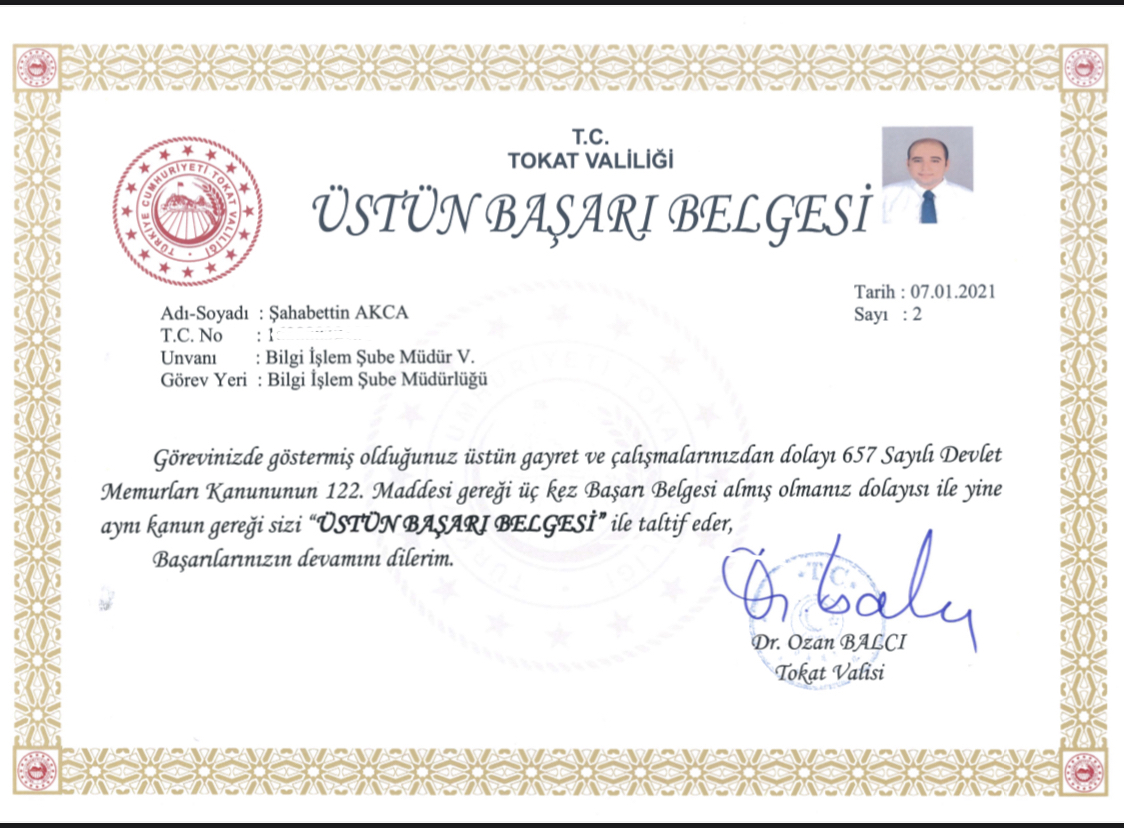 T.C.
TOKAT VALİLİĞİ
ÜSTÜN BAŞARI BELGESİ
TÜRKİYE CUMHURİYETİ TOKAT VALİLİĞİ
Tarih : 07.01.2021
Sayı : 2
Adı-Soyadı : Şahabettin AKCA
T.C. No : 1
Unvanı : Bilgi İşlem Şube Müdür V.
Görev Yeri : Bilgi İşlem Şube Müdürlüğü
Görevinizde göstermiş olduğunuz üstün gayret ve çalışmalarınızdan dolayı 657 Sayılı Devlet
Memurları Kanununun 122. Maddesi gereği üç kez Başarı Belgesi almış olmanız dolayısı ile yine
aynı kanun gereği sizi “ÜSTÜN BAŞARI BELGESİ” ile taltif eder,
Başarılarınızın devamını dilerim.
T.C.
Dr. Ozan BALCI
Tokat Valisi